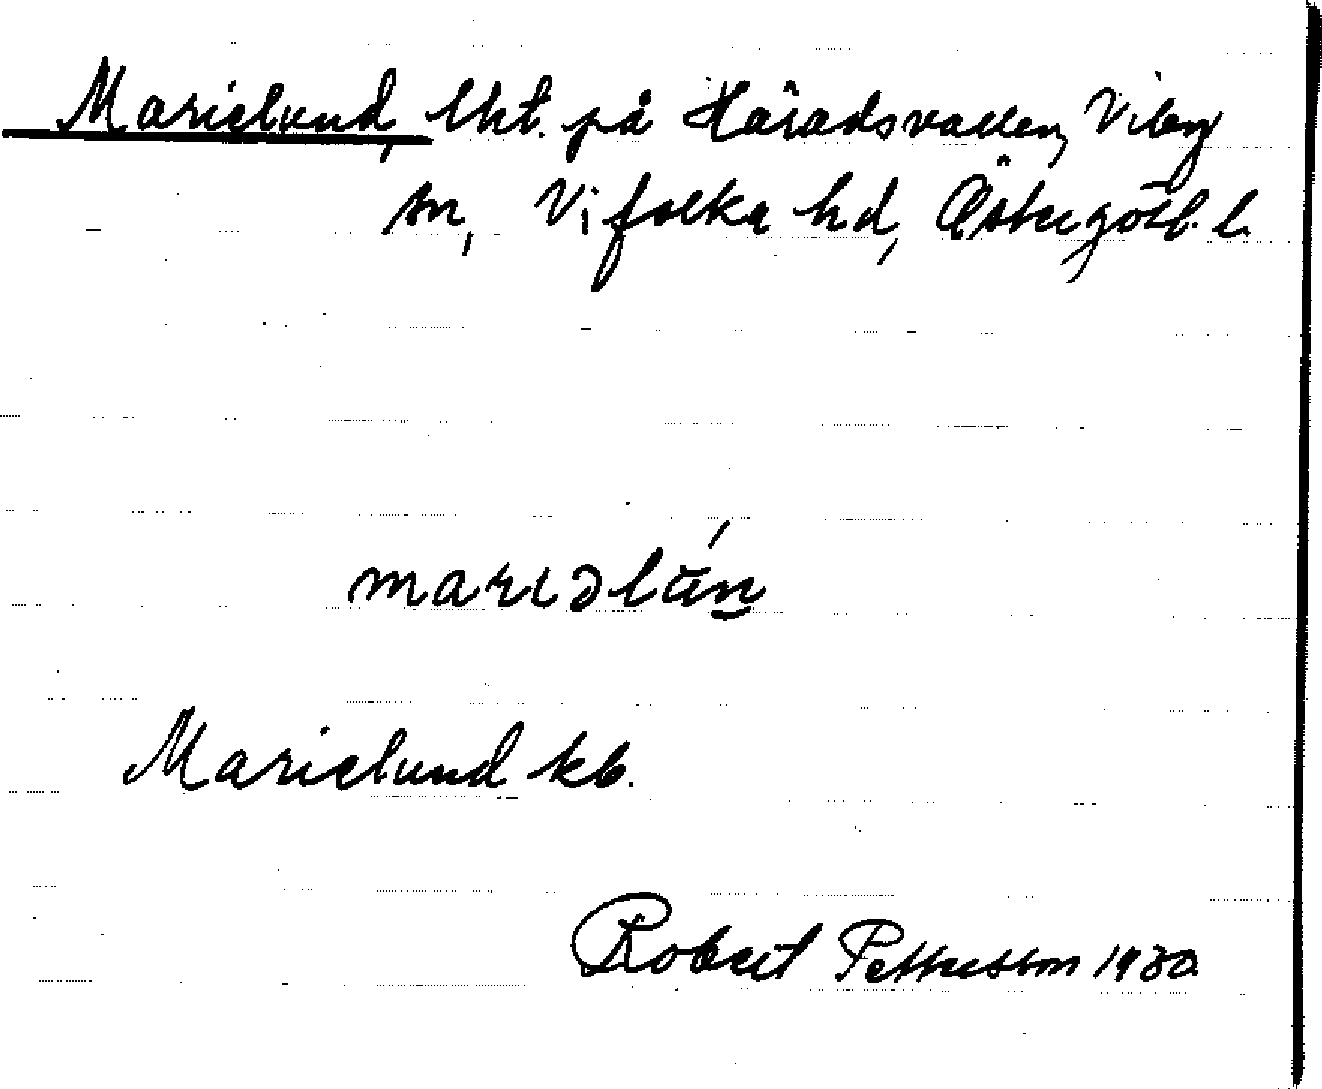 Marielund, lht. på Häradsvallen, Viby
sn, Vifolka hd, Östergötl. l.
marɩəlún̲
Marielund kb.
Robert Pettersson 1930.